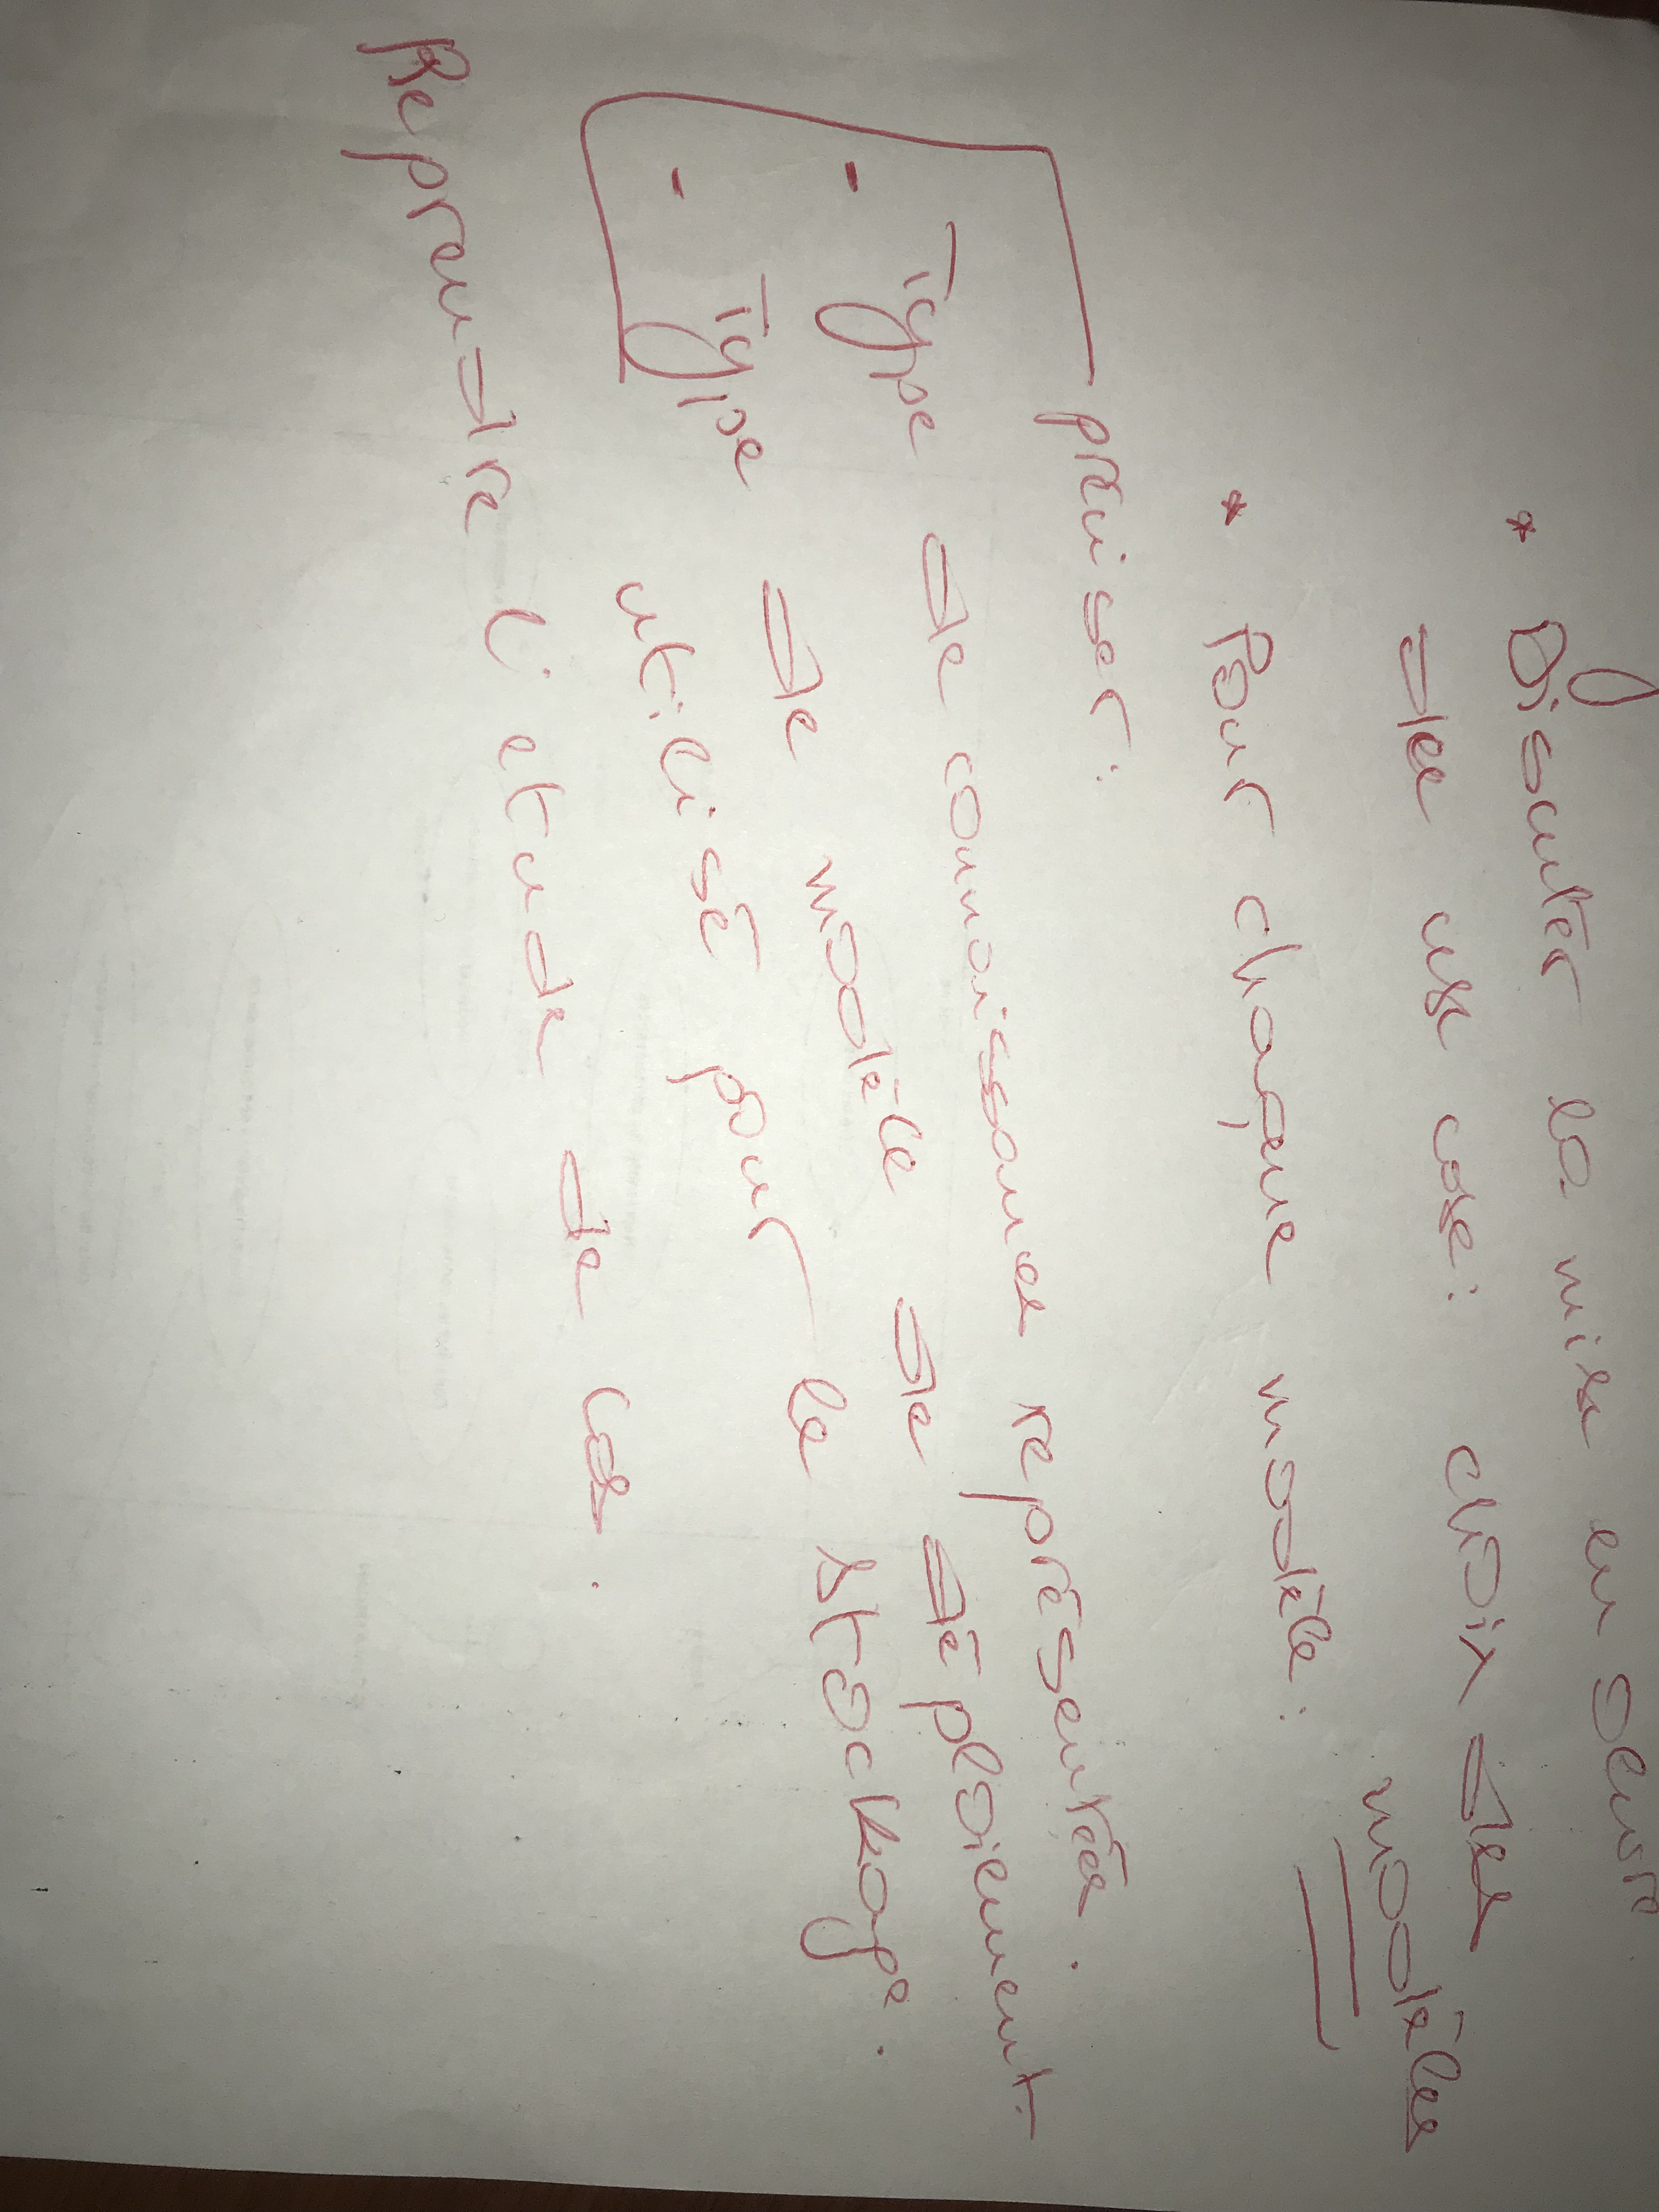 * Discuter la mise en oeuvre
des use case: choix des
modèles
* Pour chaque modèle:
préciser:
- Type de connaissances représentés.
- Type de modèle de déploiement
utilisé pour le stockage.
Reprendre l'etude de cas.